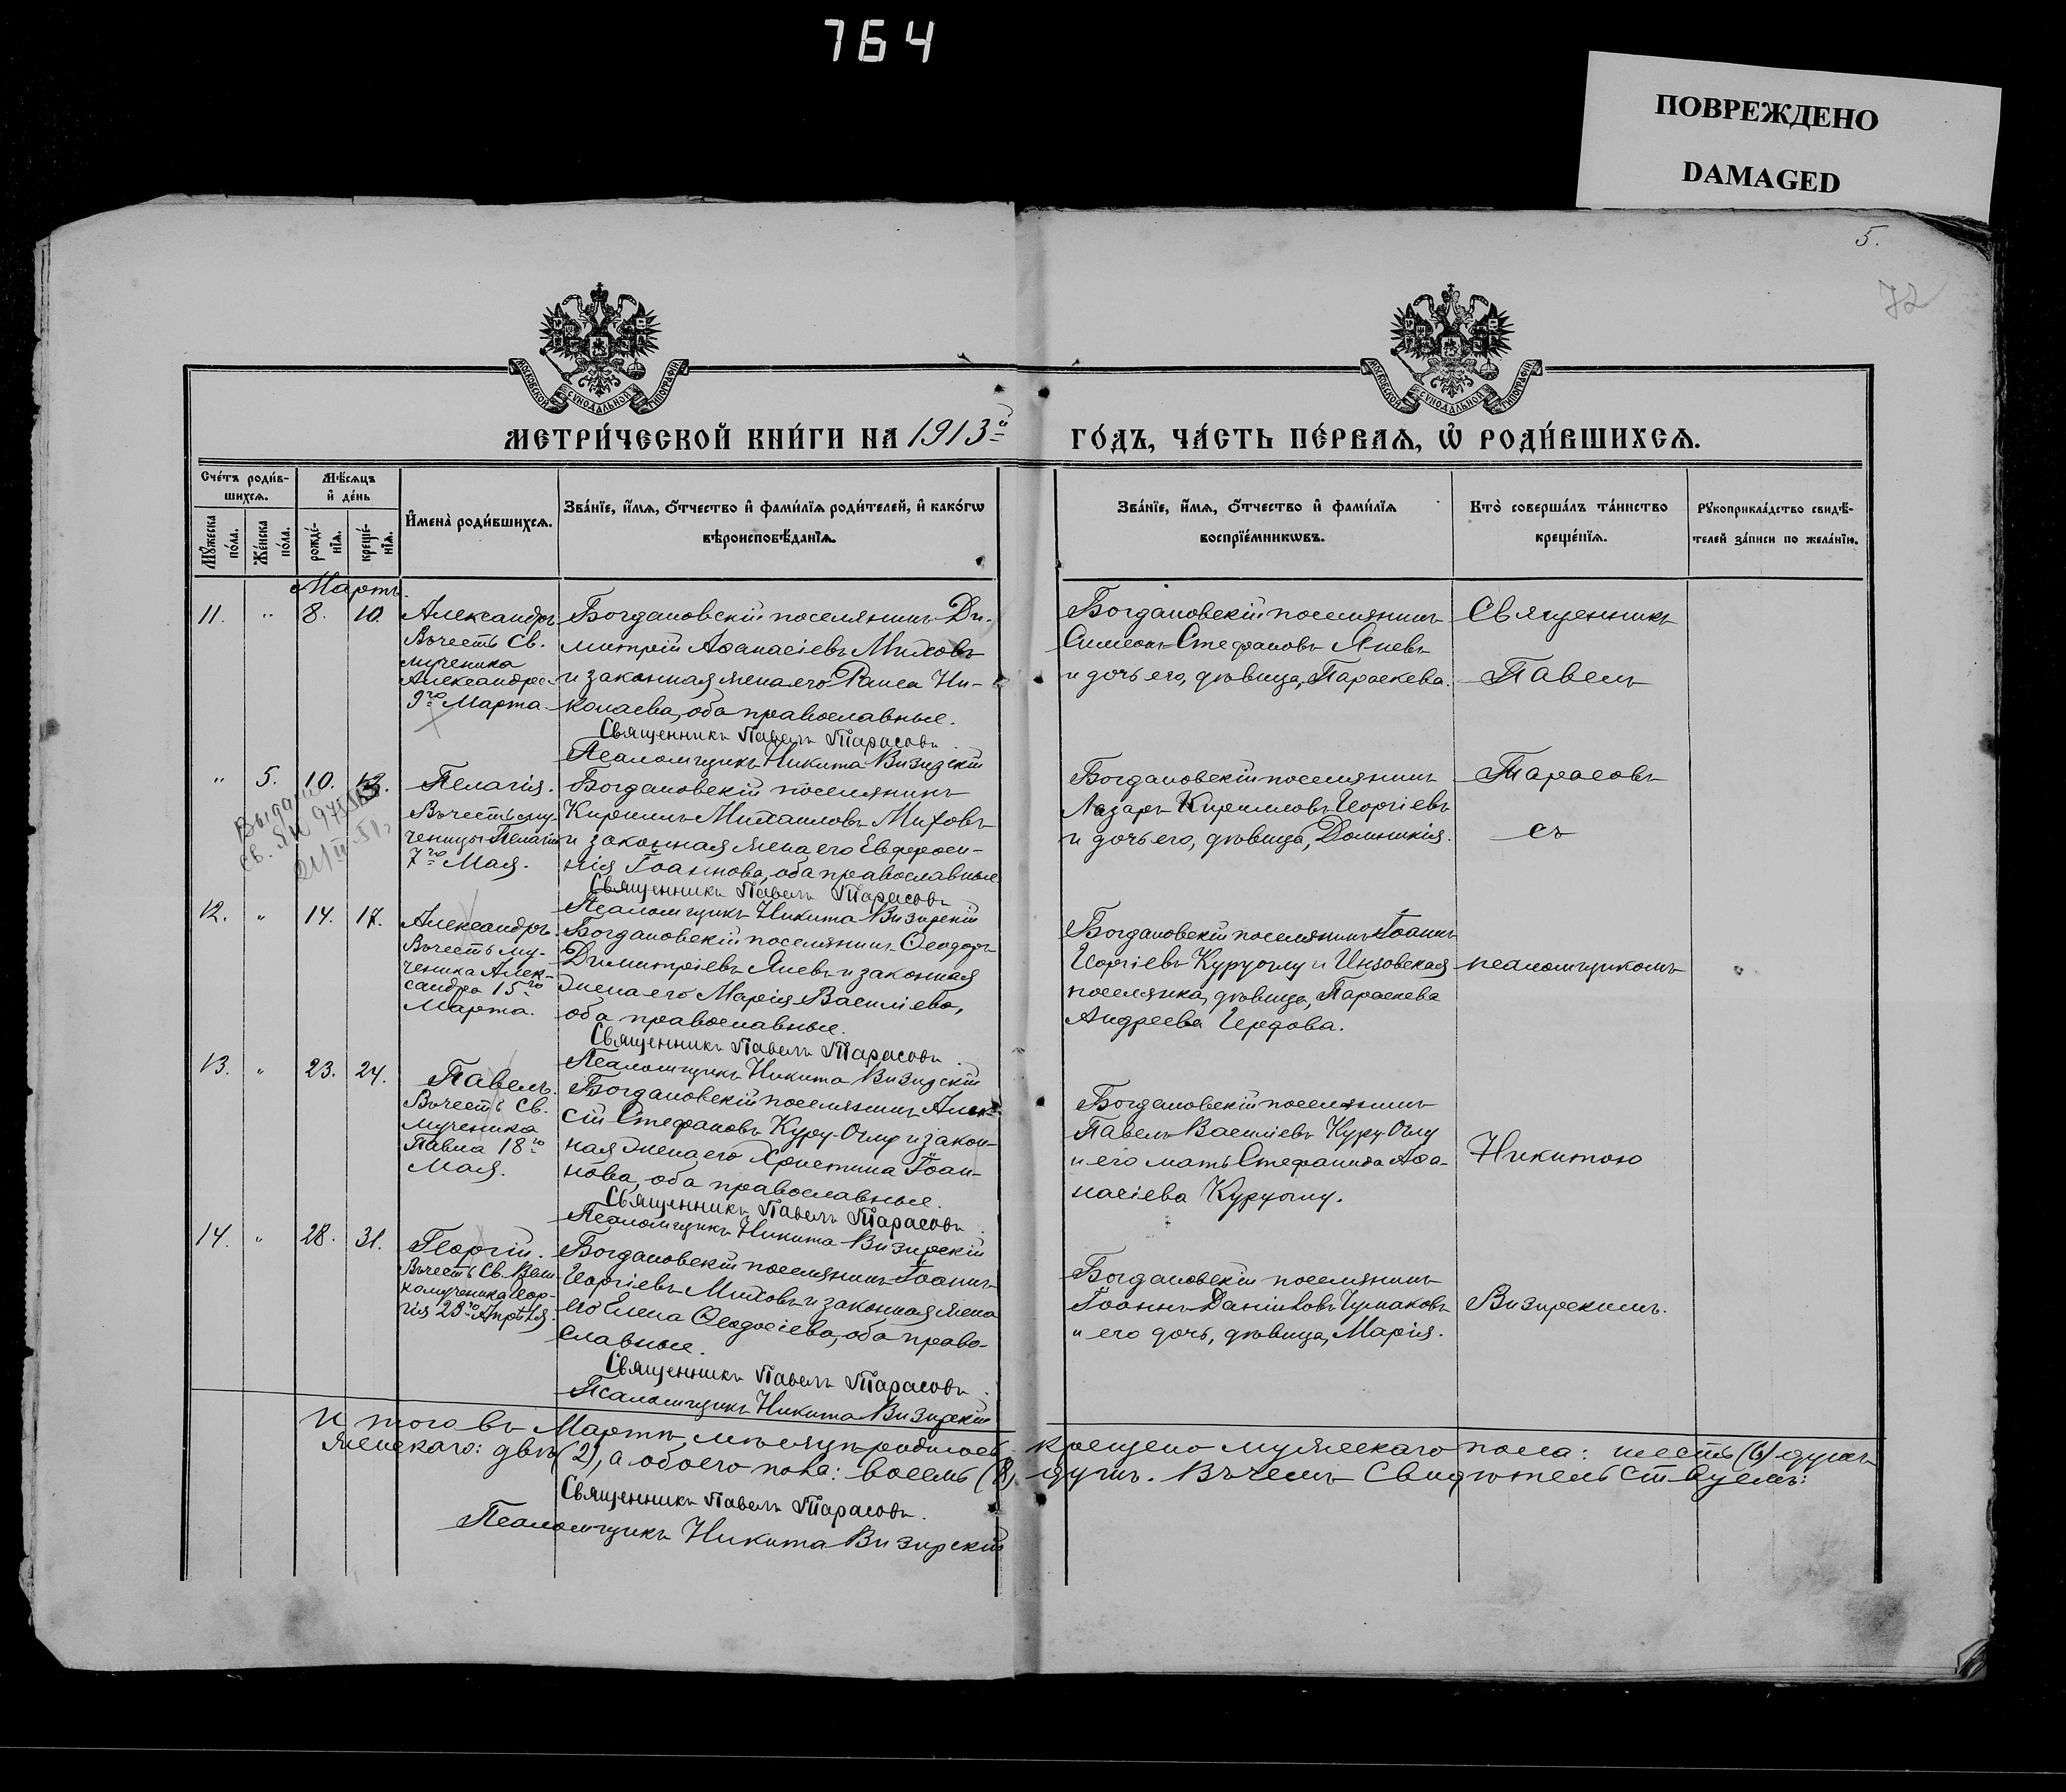 764
ПОВРЕЖДЕНО
DAMAGED
5.
72
МОСКОВСКОЙ СУНОДАЛЬНОЙ ТИПОГРАФІИ
МОСКОВСКОЙ СУНОДАЛЬНОЙ ТИПОГРАФІИ
МЕТРИ́ЧЕСКОЙ КНИ́ГИ НА 1913й
ГО́ДЪ, ЧА́СТЬ ПЕ́РВАѦ, Ѡ҆ РОДИ́ВШИХСѦ.
Сче́тъ роди́в-
шихсѧ.
Мꙋ́жеска по́ла.
Же́нска по́ла.
Мѣ́сѧцъ
и҆ де́нь
рожде́-
нїѧ.
креще́-
нїѧ.
И҆мена̀ роди́вшихсѧ.
Зва́нїе, и҆́мѧ, ѻ҆́тчество и҆ фами́лїѧ роди́телей, и҆ како́гѡ
вѣроисповѣ́данїѧ.
Зва́нїе, и҆́мѧ, ѻ҆́тчество и҆ фами́лїѧ
воспрїе́мникѡвъ.
Кто̀ соверша́лъ та́инство
креще́нїѧ.
Рꙋкоприкла́дство свидѣ́-
телей за́писи по жела́нїю.
Мартъ.
11. " 8. 10.
Александръ
Въ честь Св.
мученика
Александра
9го Марта
Богдановскій поселянинъ Ди-
митрій Аѳанасіевъ Миховъ
и законная жена его Раиса Ни-
колаева, оба православные.
Священникъ Павелъ Тарасовъ.
Псаломщикъ Никита Визирскій
Богдановскій поселянинъ
Симеонъ Стефановъ Яневъ
и дочь его, дѣвица, Параскева.
Священникъ
Павелъ
" 5. 10. 13.
Выдано
Св.
Пелагія.
Въ честь му-
ченицы Пелагіи
7го Мая.
Богдановскій поселянинъ
Кириллъ Михаиловъ Миховъ
и законная жена его Евфроси-
нія Іоаннова, оба православные.
Священникъ Павелъ Тарасовъ
Псаломщикъ Никита Визирскій
Богдановскій поселянинъ
Лазарь Кирилловъ Георгіевъ
и дочь его, дѣвица, Домникія.
Тарасовъ
съ
12. " 14. 17.
Александръ.
Въ честь му-
ченика Алек-
сандра 15го
Марта.
Богдановскій поселянинъ Ѳеодоръ
Димитріевъ Яневъ и законная
жена его Марія Василіева,
оба православные.
Священникъ Павелъ Тарасовъ.
Псаломщикъ Никита Визирскій
Богдановскій поселянинъ Іоаннъ
Георгіевъ Куруоглу и Инзовская
поселянка, дѣвица, Параскева
Андреева
псаломщикомъ
13. " 23. 24.
Павелъ.
Въ честь Св.
мученика
Павла 18го
Мая.
Богдановскій поселянинъ Алек-
сій Стефановъ Куру-Оглу и закон-
ная жена его Христина Іоан-
нова, оба православные.
Священникъ Павелъ Тарасовъ.
Псаломщикъ Никита Визирскій
Богдановскій поселянинъ
Павелъ Василіевъ Куру-Оглу
и его мать Стефанида Аѳа-
насіева Куруоглу.
Никитою
14. " 28. 31.
Георгій.
Въ честь Св. Вели-
комученика Геор-
гія 23го Апрѣля.
Богдановскій поселянинъ Іоаннъ
Георгіевъ Миховъ и законная жена
его Елена Ѳеодосіева, оба право-
славные.
Священникъ Павелъ Тарасовъ.
Псаломщикъ Никита Визирскій
Богдановскій поселянинъ
Іоаннъ Даніиловъ Чумаковъ
и его дочь, дѣвица, Марія.
Визирскимъ.
Итого въ Мартѣ мѣсяцѣ родилось и крещено мужескаго пола: шесть (6) душъ
женскаго: двѣ (2), а обоего пола: восемь (8) душъ. Въ чемъ свидѣтельствуемъ:
Священникъ Павелъ Тарасовъ.
Псаломщикъ Никита Визирскій